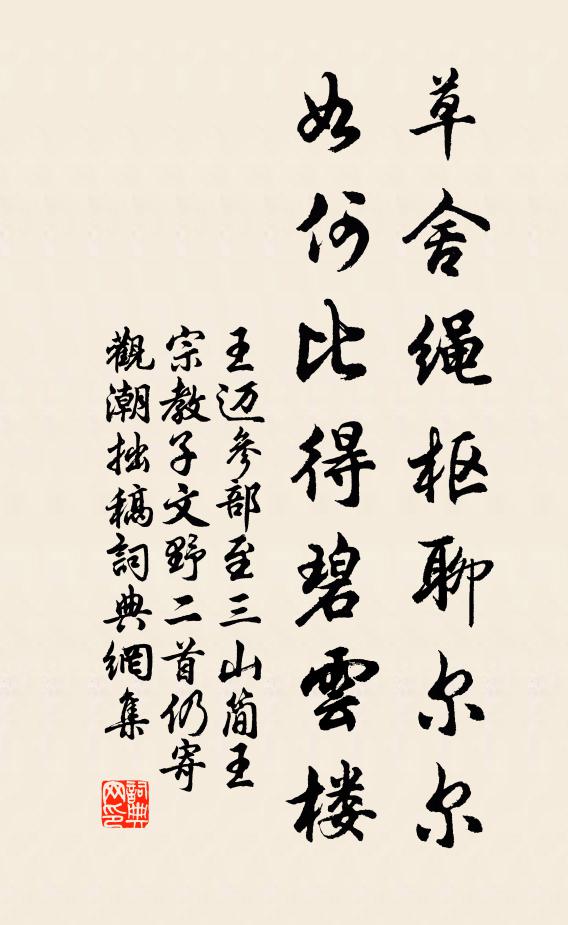 草舍绳枢聊尔尔
如何比得碧雲楼
王迈參部至三山简王
宗教子文野二首仍寄
觀潮拙稿詞典網集
詞典网印